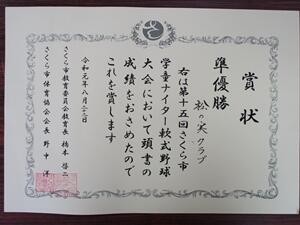 賞状
準優勝
松の実クラブ
右は第十五回さくら市
学童ナイター軟式野球
大会において頭書の
成績をおさめたので
これを賞します
令和元年八月二十三日
さくら市教育委員会教育長 橋本啓二
さくら市体育協会会長 野中